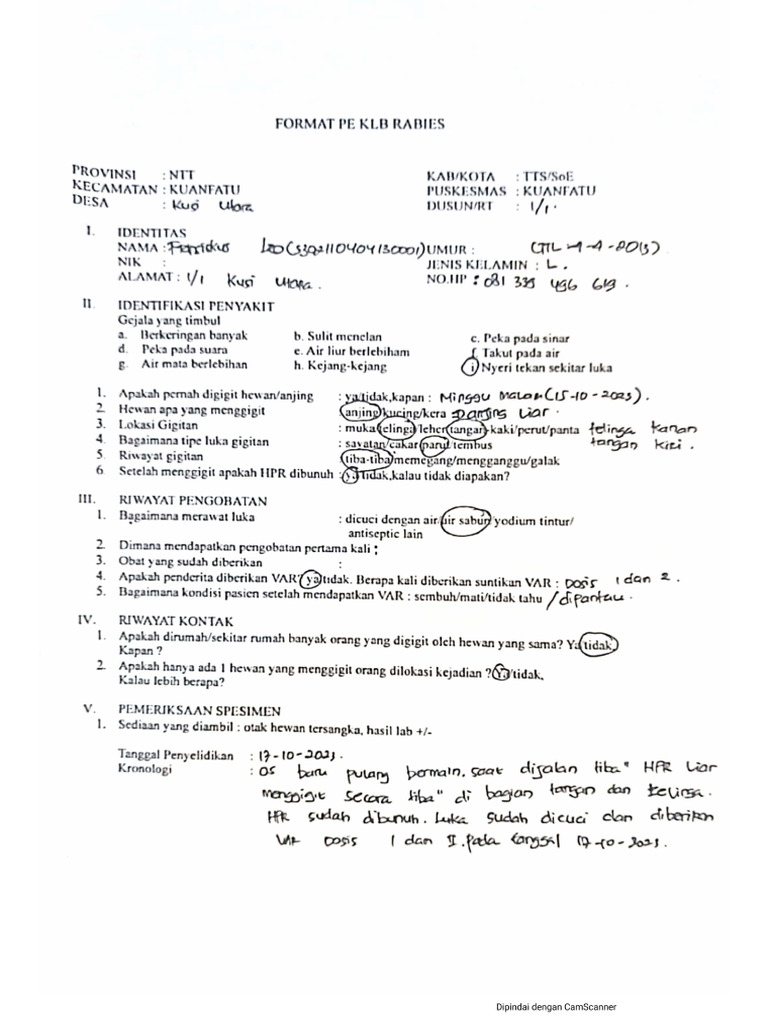 FORMAT PE KLB RABIES
PROVINSI : NTT KAB/KOTA : TTS/SoE
KECAMATAN : KUANFATU PUSKESMAS : KUANFATU
DESA : Kusi Utara DUSUN/RT : 1/1.
I. IDENTITAS
NAMA : UMUR : (TTL -4-4-2013)
NIK : JENIS KELAMIN : L.
ALAMAT : 1/1 Kusi Utara. NO.HP : 081 339 496 619.
II. IDENTIFIKASI PENYAKIT
Gejala yang timbul
a. Berkeringan banyak b. Sulit menelan c. Peka pada sinar
d. Peka pada suara e. Air liur berlebiham f. Takut pada air
g. Air mata berlebihan h. Kejang-kejang i Nyeri tekan sekitar luka
1. Apakah pernah digigit hewan/anjing : ya/tidak,kapan : Minggu malam (15-10-2023).
2. Hewan apa yang menggigit : anjing/kucing/kera Anjing Liar.
3. Lokasi Gigitan : muka/telinga/leher/tangan-kaki/perut/panta telinga kanan
4. Bagaimana tipe luka gigitan : sayatan/cakar/parut/tembus tangan kiri.
5. Riwayat gigitan : tiba-tiba/memegang/mengganggu/galak
6. Setelah menggigit apakah HPR dibunuh : ya/tidak,kalau tidak diapakan?
III. RIWAYAT PENGOBATAN
1. Bagaimana merawat luka : dicuci dengan air/air sabun/yodium tintur/
antiseptic lain
2. Dimana mendapatkan pengobatan pertama kali :
3. Obat yang sudah diberikan :
4. Apakah penderita diberikan VAR? ya/tidak. Berapa kali diberikan suntikan VAR : Dosis 1 dan 2.
5. Bagaimana kondisi pasien setelah mendapatkan VAR : sembuh/mati/tidak tahu /dipantau.
IV. RIWAYAT KONTAK
1. Apakah dirumah/sekitar rumah banyak orang yang digigit oleh hewan yang sama? Ya/tidak
Kapan ?
2. Apakah hanya ada 1 hewan yang menggigit orang dilokasi kejadian ? Ya/tidak,
Kalau lebih berapa?
V. PEMERIKSAAN SPESIMEN
1. Sediaan yang diambil : otak hewan tersangka, hasil lab +/-
Tanggal Penyelidikan : 17-10-2023.
Kronologi : OS baru pulang bermain, saat dijalan tiba" HPR Liar
menggigit secara tiba" di bagian tangan dan telinga.
HPR sudah dibunuh. Luka sudah dicuci dan diberikan
VAR Dosis 1 dan II. pada tanggal 17-10-2023.
Dipindai dengan CamScanner